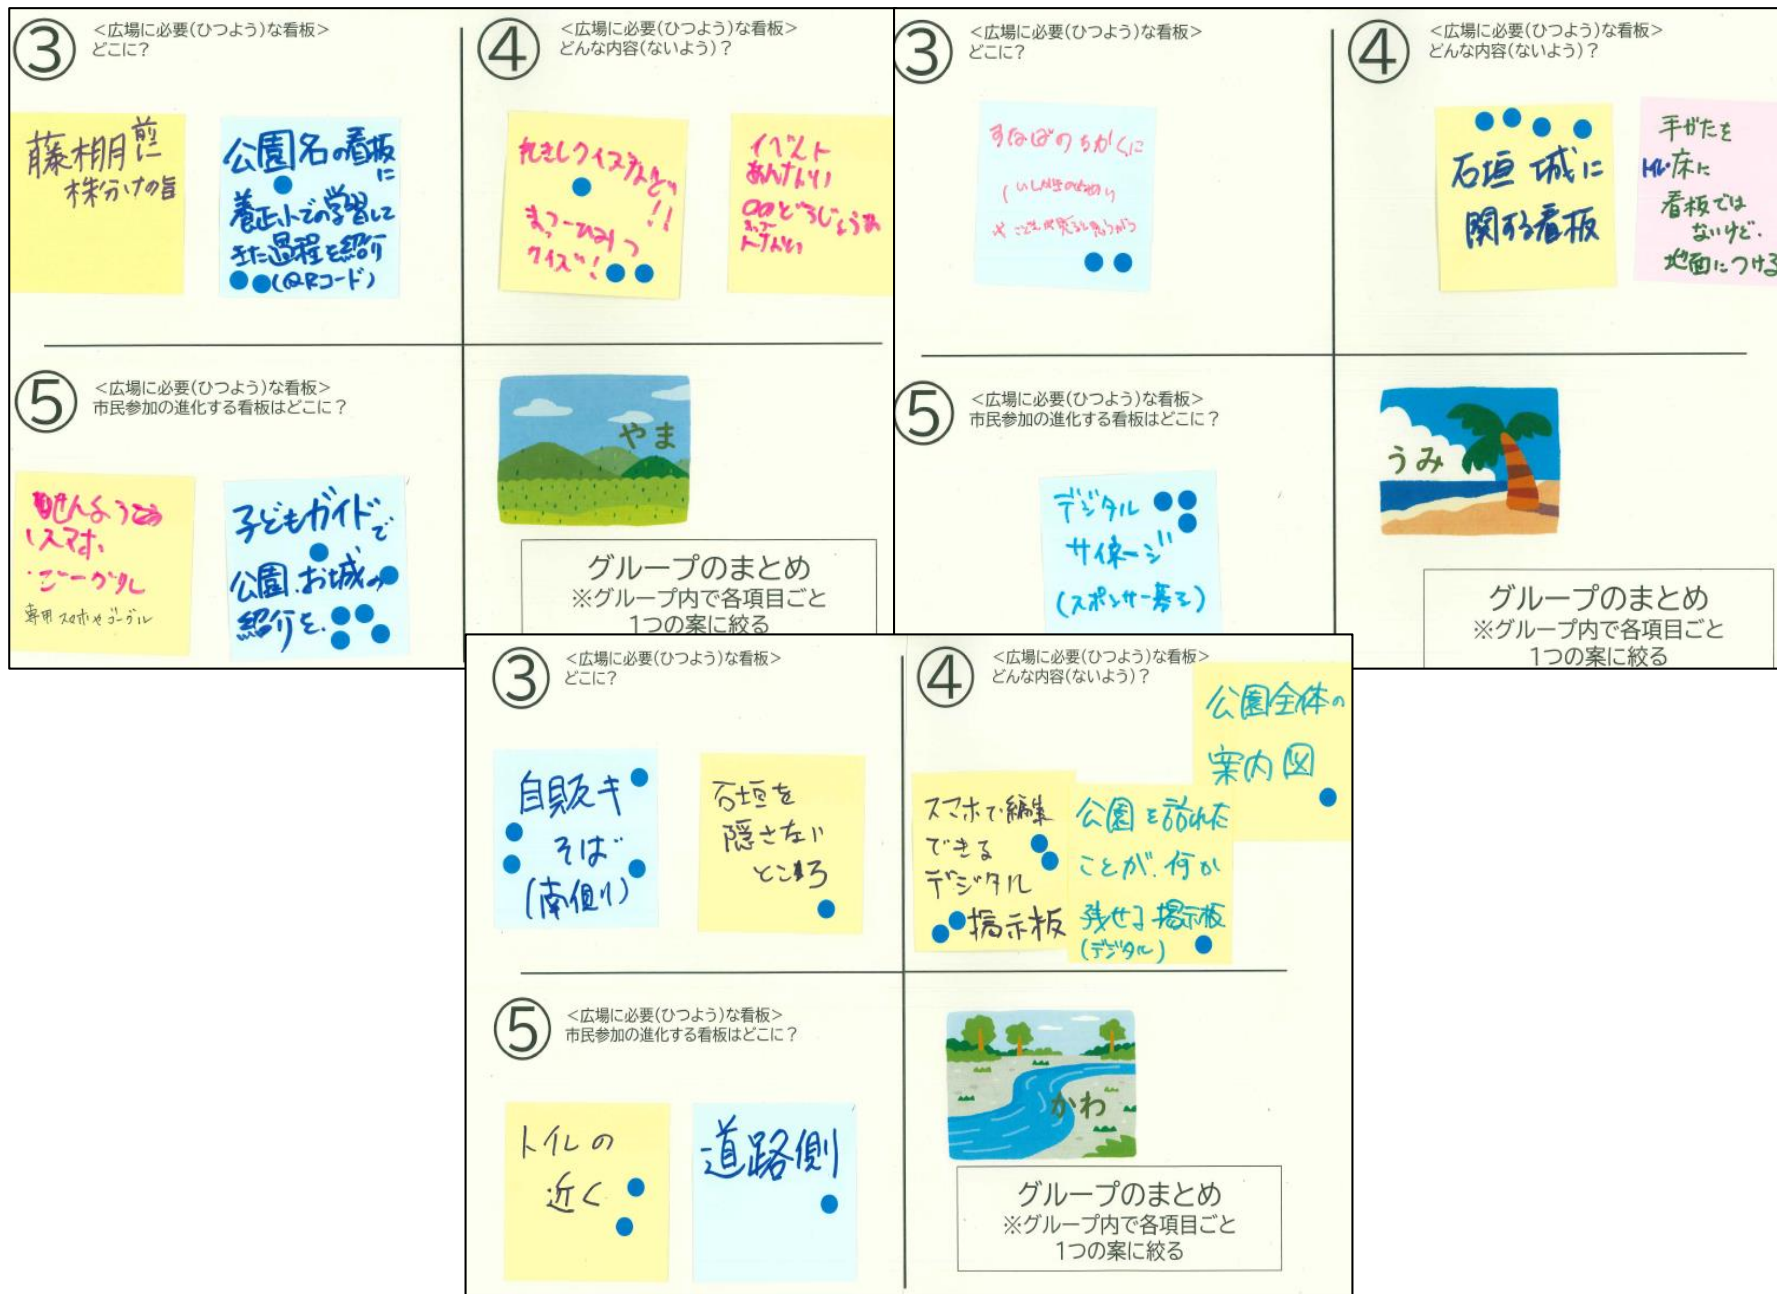 ③
<広場に必要(ひつよう)な看板>
どこに?
藤棚前に
株分けの旨
公園名の看板
に
養正小での学習して
きた過程を紹介
(QRコード)
④
<広場に必要(ひつよう)な看板>
どんな内容(ないよう)?
れきしクイズ
!!
クイズ!
イベント
⑤
<広場に必要(ひつよう)な看板>
市民参加の進化する看板はどこに?
スマホ、
専用スマホやゴーグル
子どもガイドで
公園.お城の
紹介を.
やま
グループのまとめ
※グループ内で各項目ごと
1つの案に絞る
③
<広場に必要(ひつよう)な看板>
どこに?
すなばのちかくに
④
<広場に必要(ひつよう)な看板>
どんな内容(ないよう)?
石垣 城に
関する看板
手がたを
床に
看板では
ないけど.
地面につける
⑤
<広場に必要(ひつよう)な看板>
市民参加の進化する看板はどこに?
デジタル
サイネージ
(スポンサー募る)
うみ
グループのまとめ
※グループ内で各項目ごと
1つの案に絞る
③
<広場に必要(ひつよう)な看板>
どこに?
自販キ
そば
(南側)
石垣を
隠さない
ところ
④
<広場に必要(ひつよう)な看板>
どんな内容(ないよう)?
公園全体の
案内図
スマホで編集
できる
デジタル
掲示板
公園を訪れた
ことが.何か
残せる掲示板
(デジタル)
⑤
<広場に必要(ひつよう)な看板>
市民参加の進化する看板はどこに?
トイレの
近く
道路側
かわ
グループのまとめ
※グループ内で各項目ごと
1つの案に絞る